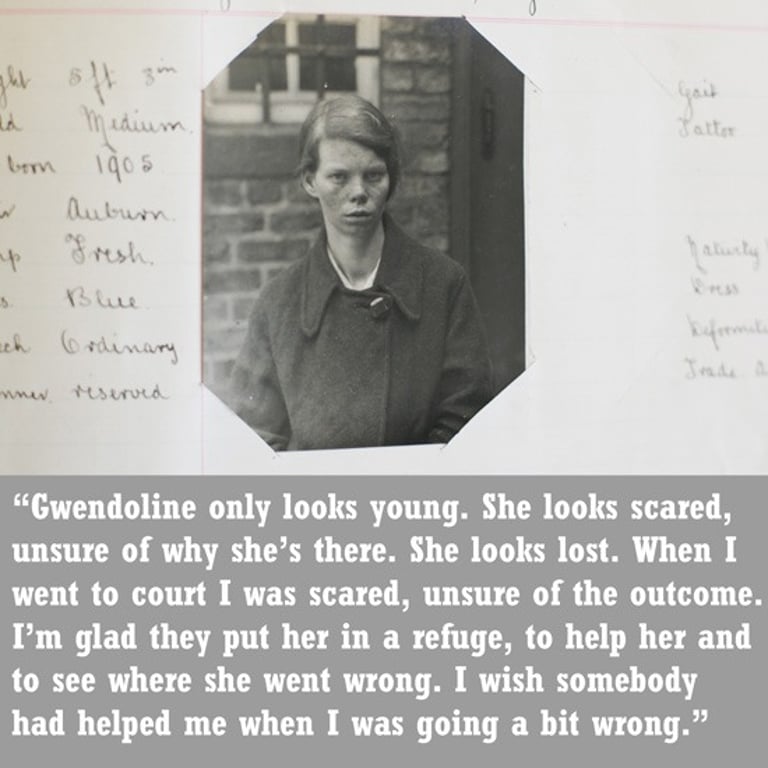 ght 5ft 3in
ld Medium.
born 1905
r Auburn.
mp Fresh.
s. Blue.
ech Ordinary
nner. reserved
Gait
Tattoo
Maturity
Dress
Deformiti
Trade. a
“Gwendoline only looks young. She looks scared,
unsure of why she’s there. She looks lost. When I
went to court I was scared, unsure of the outcome.
I’m glad they put her in a refuge, to help her and
to see where she went wrong. I wish somebody
had helped me when I was going a bit wrong.”